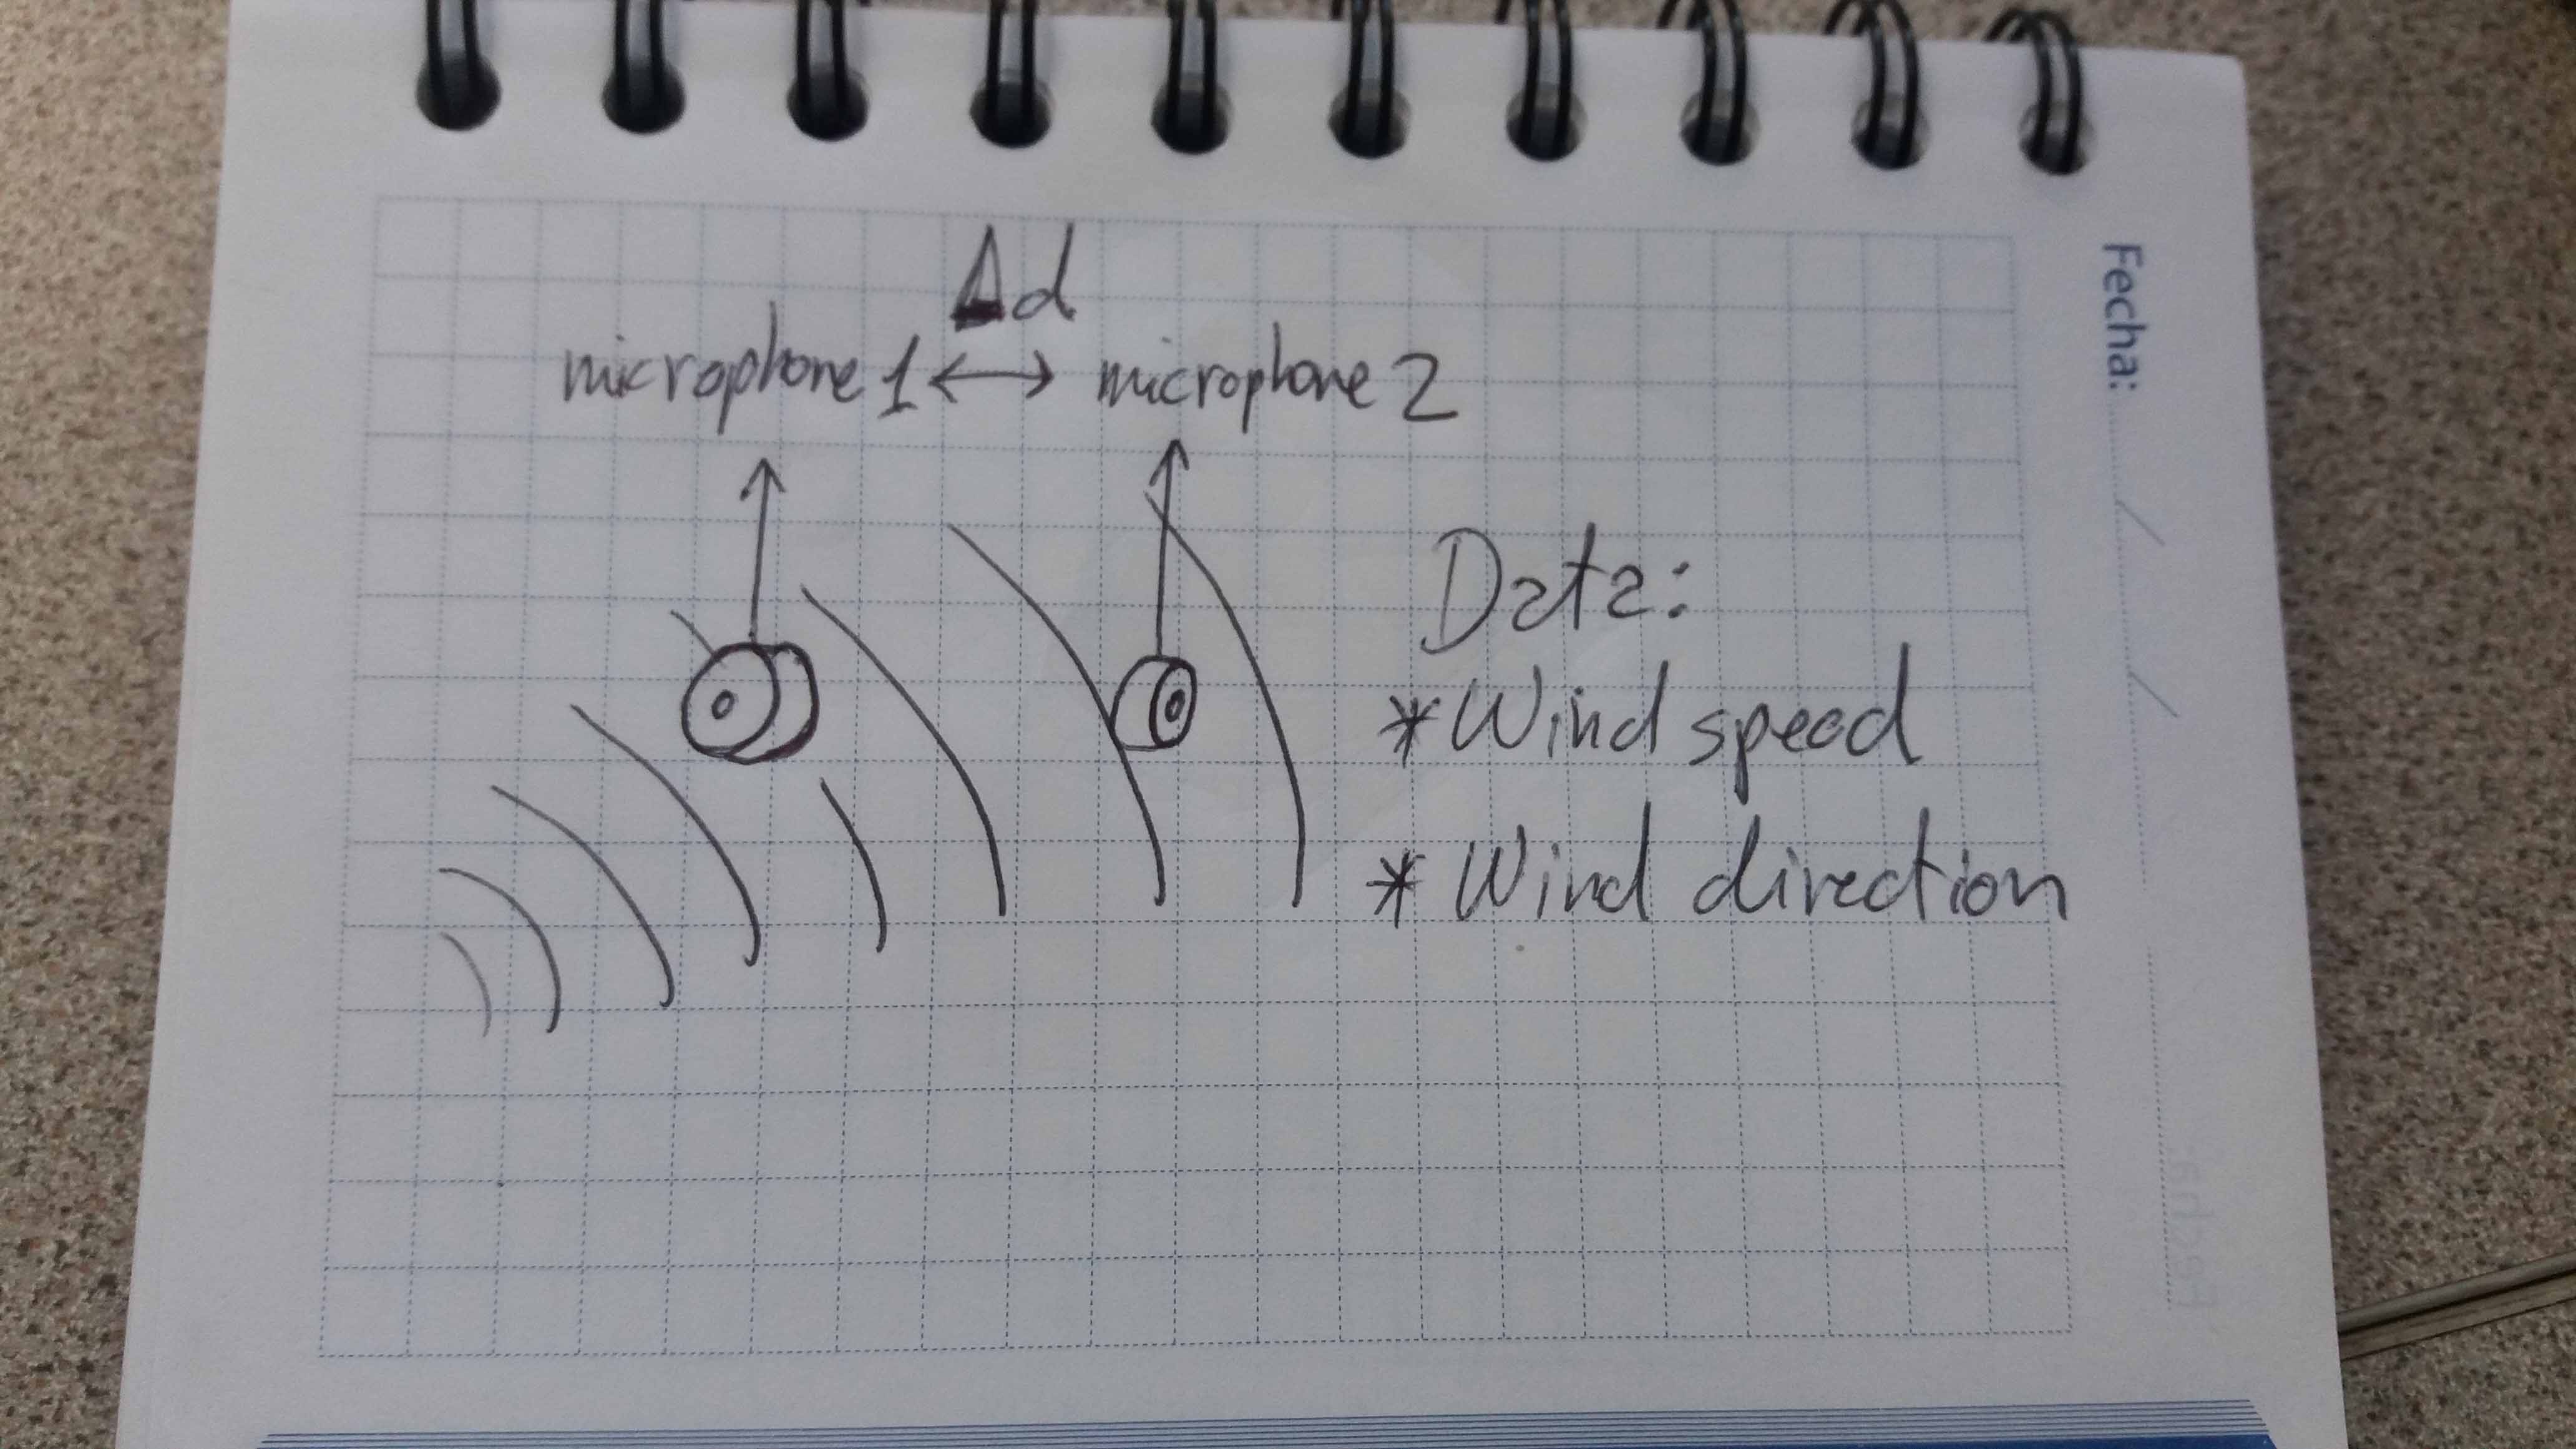 Δd
microphone 1 ↔ microphone 2
Data:
* Wind speed
* Wind direction
Fecha: